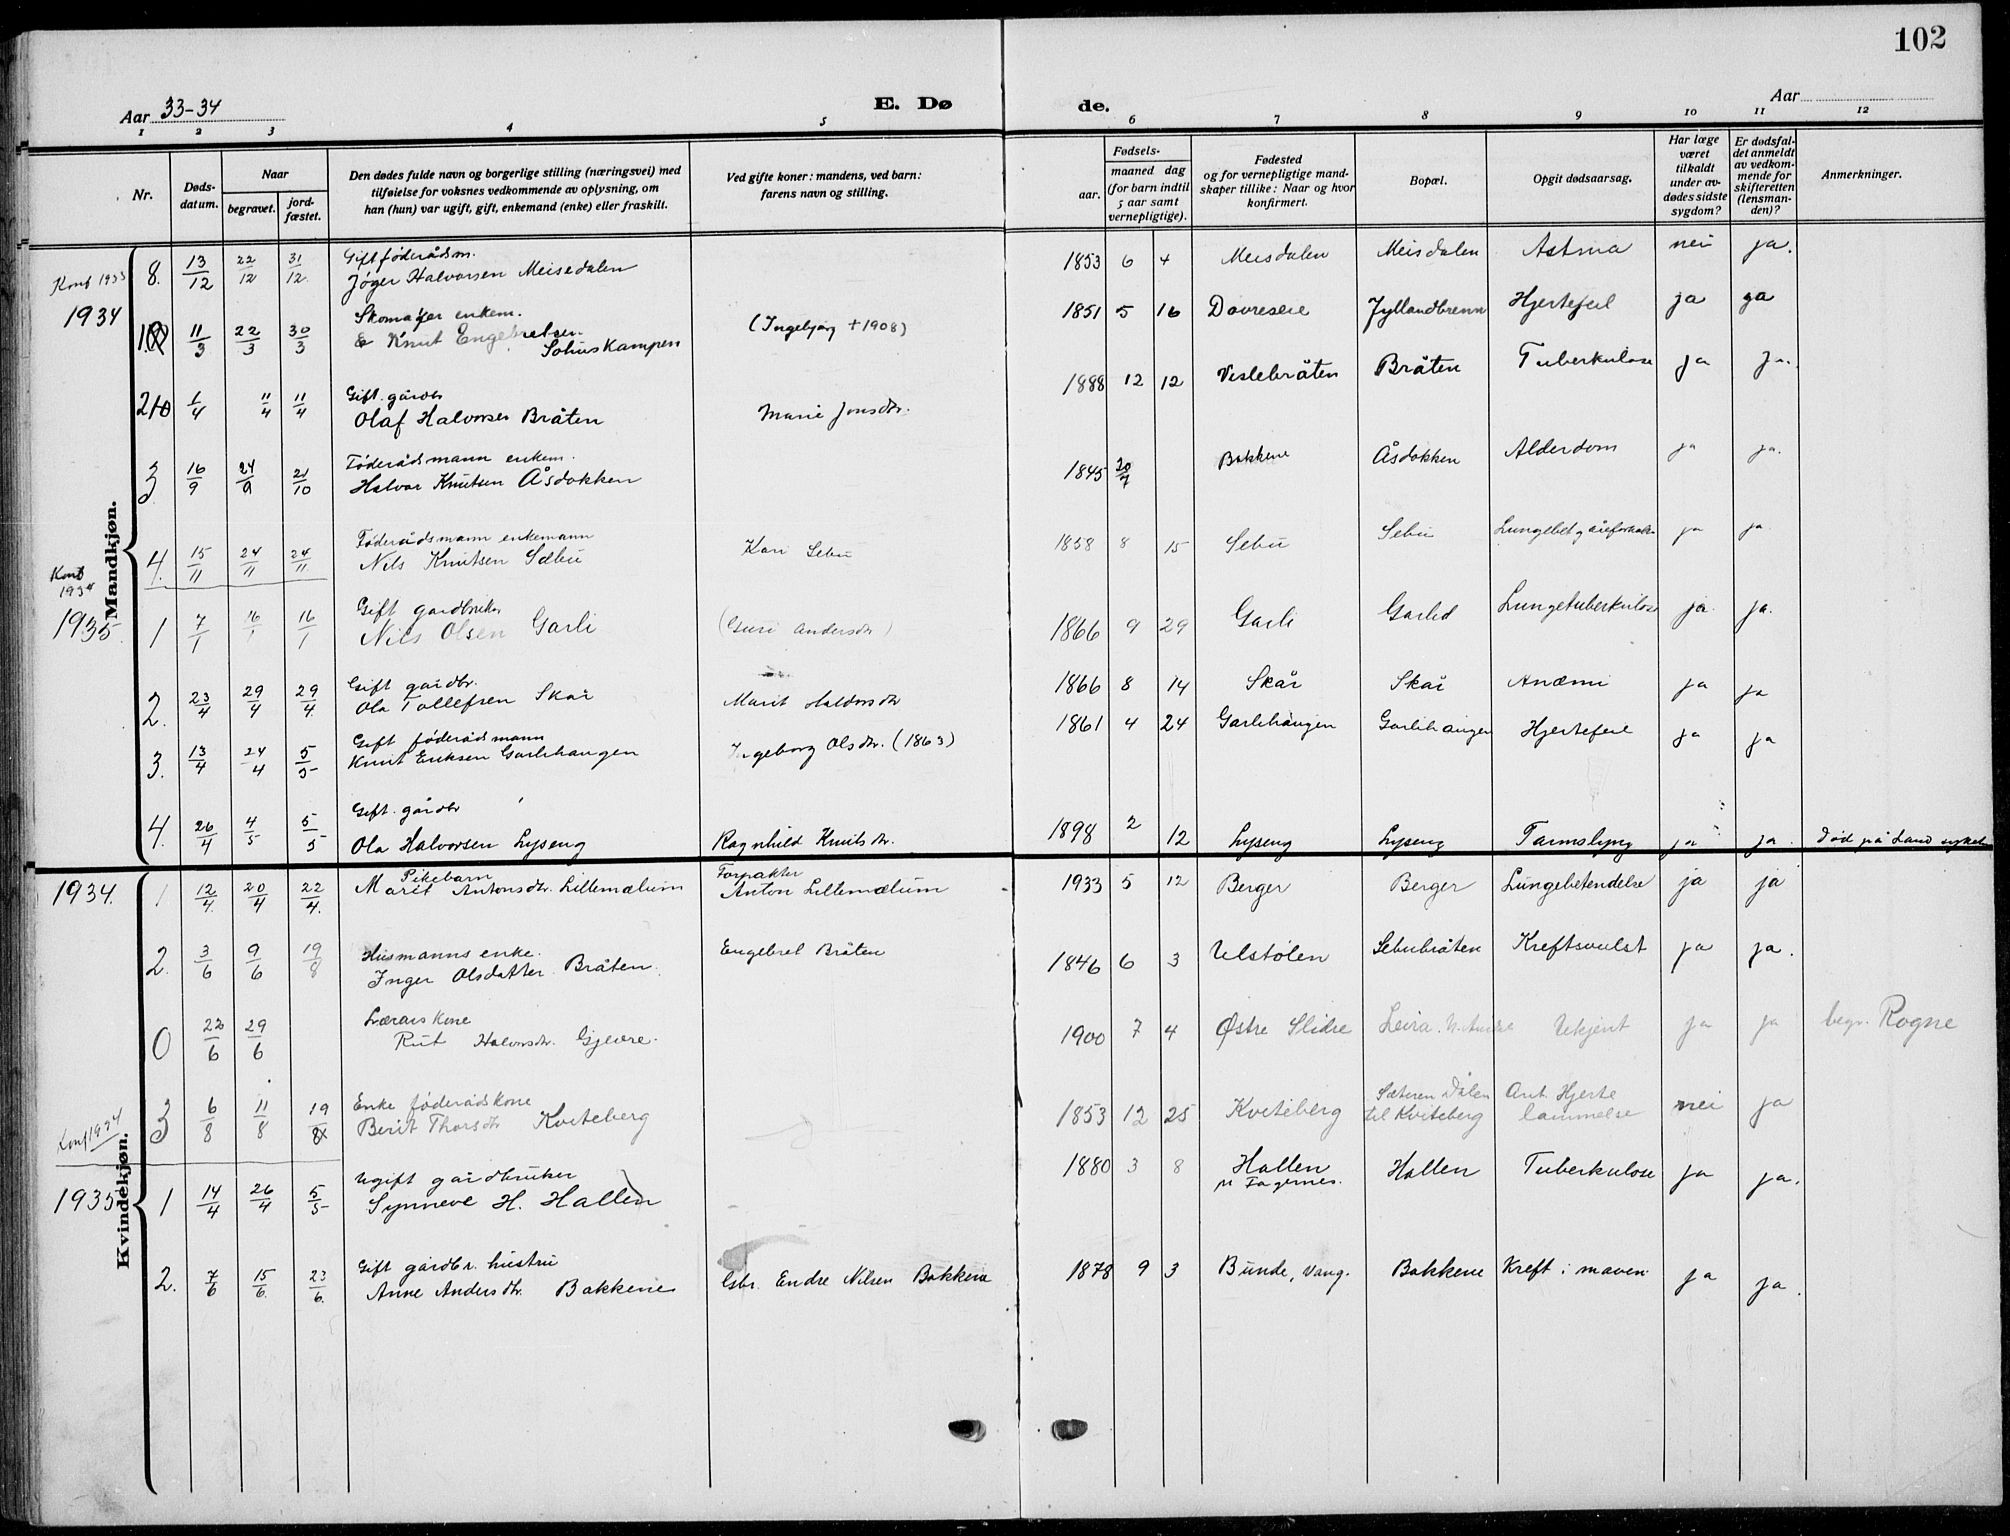 102
Aar 33-34
E. Dø
de.
Aar
1 2 3 4 5 6 7 8 9 10 11 12
Nr.
Døds-datum.
Naar
begravet.
jord-fæstet.
Den dødes fulde navn og borgerlige stilling (næringsvei) med
tilføielse for voksnes vedkommende av oplysning, om
han (hun) var ugift, gift, enkemand (enke) eller fraskilt.
Ved gifte koner: mandens, ved barn:
farens navn og stilling.
aar.
Fødsels-
maaned dag
(for barn indtil
5 aar samt
vernepligtige).
Fødested
og for vernepligtige mand-
skaper tillike: Naar og hvor
konfirmert.
Bopæl.
Opgit dødsaarsag.
Har læge
været
tilkaldt
under av-
dødes sidste
sygdom?
Er dødsfal-
det anmeldt
av vedkom-
mende for
skifteretten
(lensman-
den)?
Anmerkninger.
Mandkjøn.
Kont 1933
Gift føderådsm.
8. 13/12 22/12 31/12 Jøger Halvorsen Meisedalen 1853 6 4 Meisdalen Meisdalen Astma nei ja.
1934
Skomaker enkem.
1 11/3 22/3 30/3 Knut Engebretsen (Ingebjørg +1908) 1851 5 16 Dovreseie Jyllandbrenn Hjertefeil ja ja
Solhuskampen
Gift. gårdbr
2 1/4 11/4 11/4 Olaf Halvorsen Bråten Marie Jonsdtr. 1888 12 12 Veslebråten Bråten Tuberkulose ja ja.
Føderådsmann enkem.
3 16/9 24/9 21/10 Halvor Knutsen Åsdokken 1845 30/7 Bakkene Åsdokken Alderdom ja ja.
Føderådsmann enkemann
4. 15/11 24/11 24/11 Nils Knutsen Sæbu Kari Sebu 1858 8 15 Sebu Sebu Lungebet. ja ja
Kont 1934
1935
Gift gardbruker
1 7/1 16/1 16/1 Nils Olsen Garli (Guri Andersdtr) 1866 9 29 Garli Garlid Lungetuberkulose ja. ja.
Gift gardbr.
2. 23/4 29/4 29/4 Ola Tollefsen Skår Marit Haldorsdtr 1866 8 14 Skår Skår Anæmi ja ja
Gift føderådsmann
3. 13/4 24/4 5/5 Knut Eriksen Garlihaugen Ingeborg Olsdtr. (1863) 1861 4 24 Garlihaugen Garlihaugen Hjertefeil ja ja
Gift. gårdbr
4. 26/4 4/5 5/5 Ola Halvorsen Lyseng Ragnhild Knutsdtr. 1898 2 12 Lyseng Lyseng Tarmslyng ja ja. Død på Land sykeh.
Kvindekjøn.
1934.
Pikebarn Forpakter
1 12/4 20/4 22/4. Marit Antonsdtr. Lillemælum Anton Lillemælum 1933 5 12 Berger Berger Lungebetendelse ja ja
Husmanns enke.
2. 3/6 9/6 19/8 Inger Olsdatter Bråten. Engebret Bråten 1846 6 3 Ulstølen Sebubråten Kreftsvulst ja ja.
Lærars kone
0 22/6 29/6 Rut Halvorsdtr. Gjevre. 1900 7 4 Østre Slidre Leira. N. Aurdal Ukjent ja ja begr. Rogne
Enke føderådskone
3 6/8 11/8 19/8 Berit Thorsdtr Kviteberg 1853 12 25 Kviteberg Sæteren Dålen til Kviteberg Ant. Hjerte lammelse nei ja
Kont 1934
1935
Ugift gårdbruker
1 14/4 26/4 5/5 Synneve H. Hallen 1880 3 8 Hallen pr Fagernes. Hallen Tuberkulose ja ja.
Gift gardbr. hustru
2. 7/6 15/6 23/6. Anne Andersdtr. Bakkene Gbr. Endre Nilsen Bakkene 1878 9 3 Bunde, Vang. Bakkene Kreft i maven ja ja.